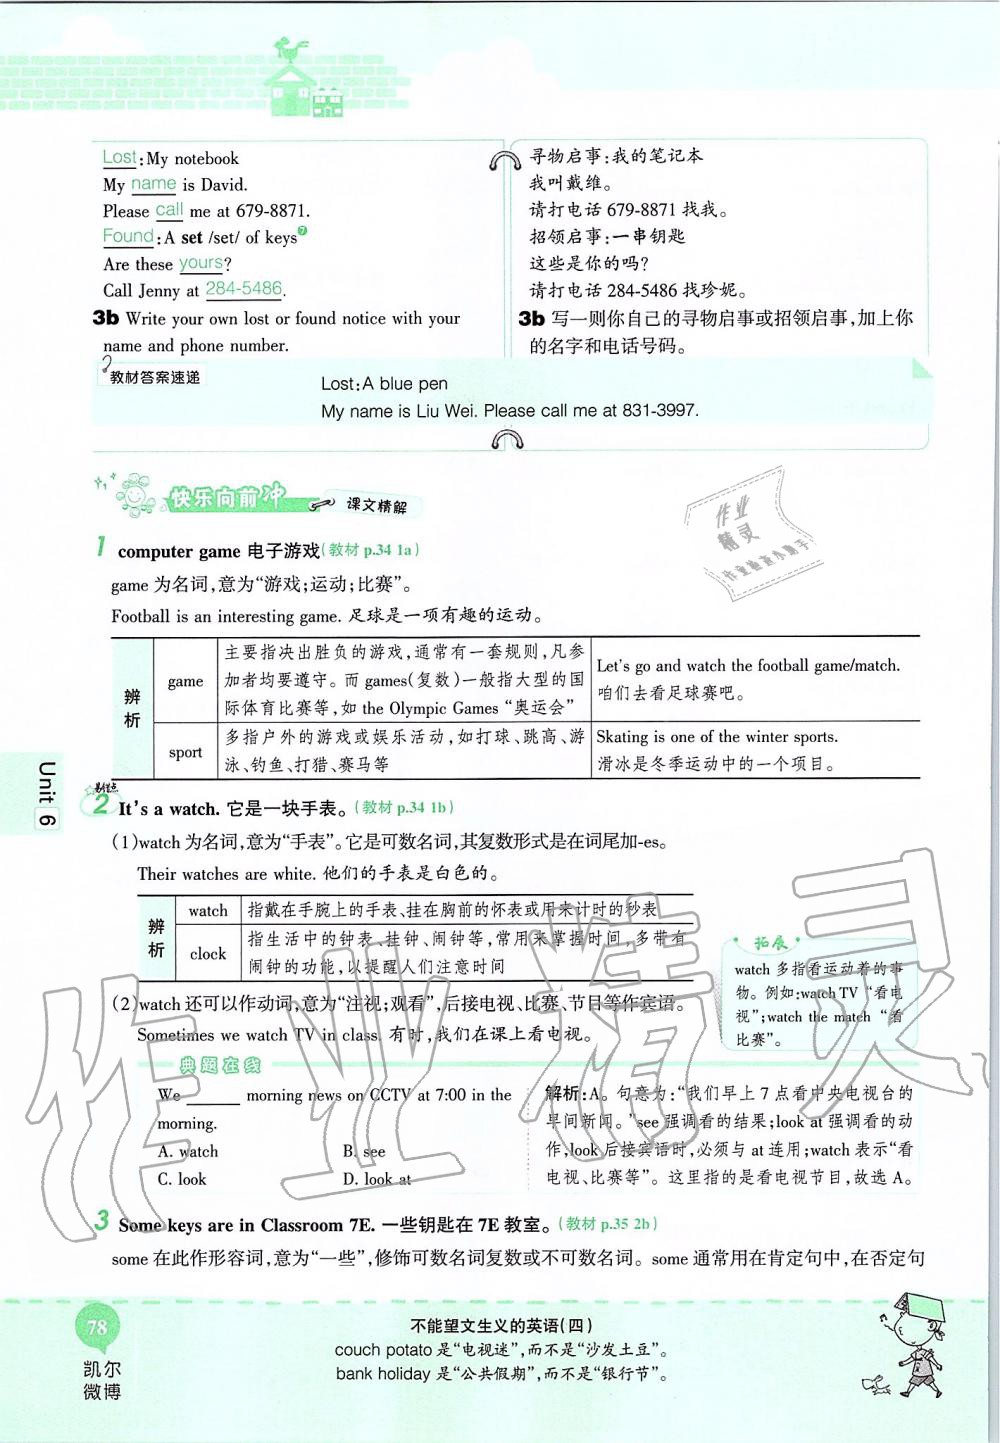 Lost:My notebook
My name is David.
Please call me at 679-8871.
Found:A set /set/ of keys⑦
Are these yours?
Call Jenny at 284-5486.
3b Write your own lost or found notice with your
name and phone number.
寻物启事:我的笔记本
我叫戴维。
请打电话 679-8871 找我。
招领启事:一串钥匙
这些是你的吗?
请打电话 284-5486 找珍妮。
3b 写一则你自己的寻物启事或招领启事,加上你
的名字和电话号码。
教材答案速递
Lost:A blue pen
My name is Liu Wei. Please call me at 831-3997.
快乐向前冲 课文精解
1 computer game 电子游戏(教材 p.34 1a)
game 为名词,意为“游戏;运动;比赛”。
Football is an interesting game. 足球是一项有趣的运动。
辨析
game
主要指决出胜负的游戏,通常有一套规则,凡参
加者均要遵守。而 games(复数)一般指大型的国
际体育比赛等,如 the Olympic Games “奥运会”
Let's go and watch the football game/match.
咱们去看足球赛吧。
sport
多指户外的游戏或娱乐活动,如打球、跳高、游
泳、钓鱼、打猎、赛马等
Skating is one of the winter sports.
滑冰是冬季运动中的一个项目。
Unit 6
易错点
2 It's a watch. 它是一块手表。(教材 p.34 1b)
(1)watch 为名词,意为“手表”。它是可数名词,其复数形式是在词尾加-es。
Their watches are white. 他们的手表是白色的。
辨析
watch
指戴在手腕上的手表、挂在胸前的怀表或用来计时的秒表
clock
指生活中的钟表、挂钟、闹钟等,常用来掌握时间,多带有
闹钟的功能,以提醒人们注意时间
(2)watch 还可以作动词,意为“注视;观看”,后接电视、比赛、节目等作宾语。
Sometimes we watch TV in class. 有时,我们在课上看电视。
拓展
watch 多指看运动着的事
物。例如:watch TV “看电
视”;watch the match “看
比赛”。
典题在线
We ______ morning news on CCTV at 7:00 in the
morning.
A. watch B. see
C. look D. look at
解析:A。句意为:“我们早上 7 点看中央电视台的
早间新闻。”see 强调看的结果;look at 强调看的动
作,look 后接宾语时,必须与 at 连用;watch 表示“看
电视、比赛等”。这里指的是看电视节目,故选 A。
3 Some keys are in Classroom 7E. 一些钥匙在 7E 教室。(教材 p.35 2b)
some 在此作形容词,意为“一些”,修饰可数名词复数或不可数名词。some 通常用在肯定句中,在否定句
78
凯尔
微博
不能望文生义的英语(四)
couch potato 是“电视迷”,而不是“沙发土豆”。
bank holiday 是“公共假期”,而不是“银行节”。
作业精灵
作业
精灵